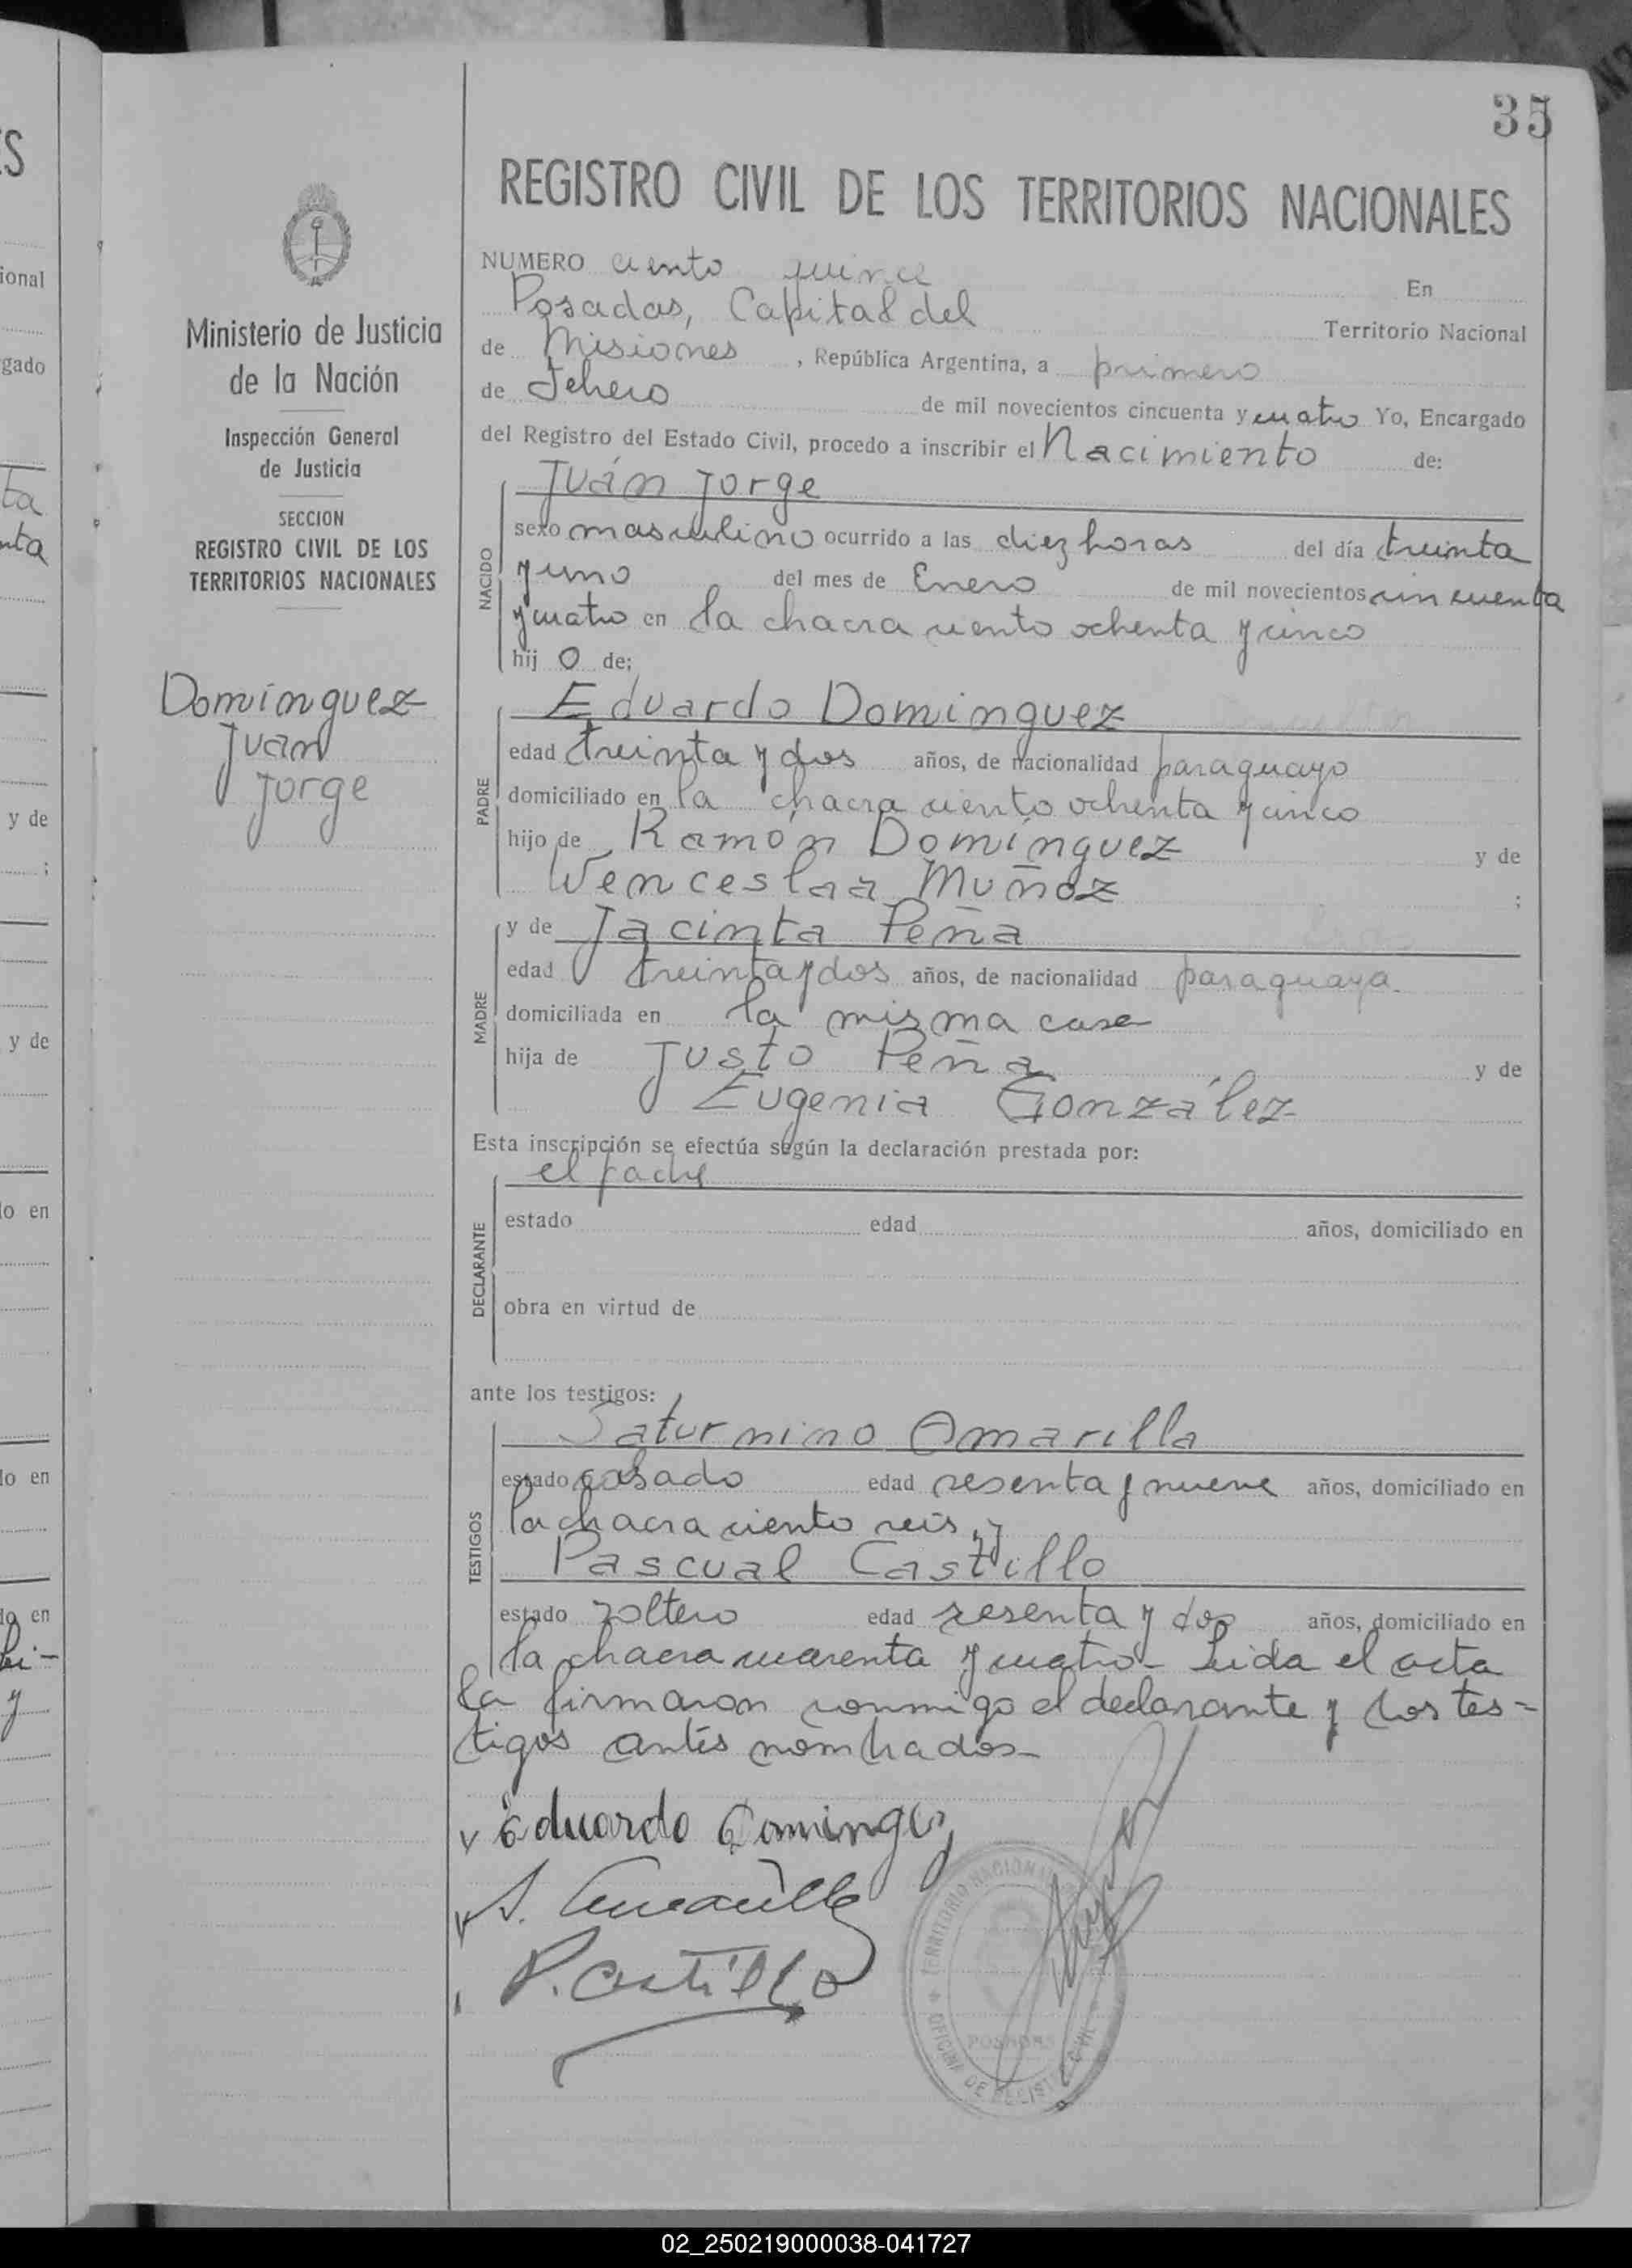 35
REGISTRO CIVIL DE LOS TERRITORIOS NACIONALES
Ministerio de Justicia
de la Nación
Inspección General
de Justicia
SECCION
REGISTRO CIVIL DE LOS
TERRITORIOS NACIONALES
Domínguez
Juan
Jorge
NUMERO ciento quince En
Posadas, Capital del Territorio Nacional
de Misiones, República Argentina, a primero
de Febrero de mil novecientos cincuenta y cuatro Yo, Encargado
del Registro del Estado Civil, procedo a inscribir el Nacimiento de:
NACIDO
Juán Jorge
sexo masculino ocurrido a las diez horas del día treinta
y uno del mes de Enero de mil novecientos cincuenta
y cuatro en la chacra ciento ochenta y cinco
hij o de;
PADRE
Eduardo Dominguez
edad treinta y dos años, de nacionalidad paraguayo
domiciliado en la chacra ciento ochenta y cinco
hijo de Ramón Domínguez y de
Wenceslaa Muñoz ;
MADRE
y de Jacinta Peña
edad treinta y dos años, de nacionalidad paraguaya.
domiciliada en la misma casa
hija de Justo Peña y de
Eugenia González
Esta inscripción se efectúa según la declaración prestada por:
DECLARANTE
el padre
estado edad años, domiciliado en
obra en virtud de
ante los testigos:
TESTIGOS
Saturnino Amarilla
estado casado edad sesenta y nueve años, domiciliado en
la chacra ciento seis, y
Pascual Castillo
estado soltero edad sesenta y dos años, domiciliado en
la chacra cuarenta y cuatro - Leida el acta
la firmaron conmigo el declarante y los tes-
tigos antes nombrados-
Eduardo Dominguez
S. Amarilla
P. Castillo
TERRITORIO NACIONAL
POSADAS
OFICINA DE REGISTRO CIVIL
ional
gado
ta
nta
y de
;
y de
lo en
lo en
do en
y
02_250219000038-041727